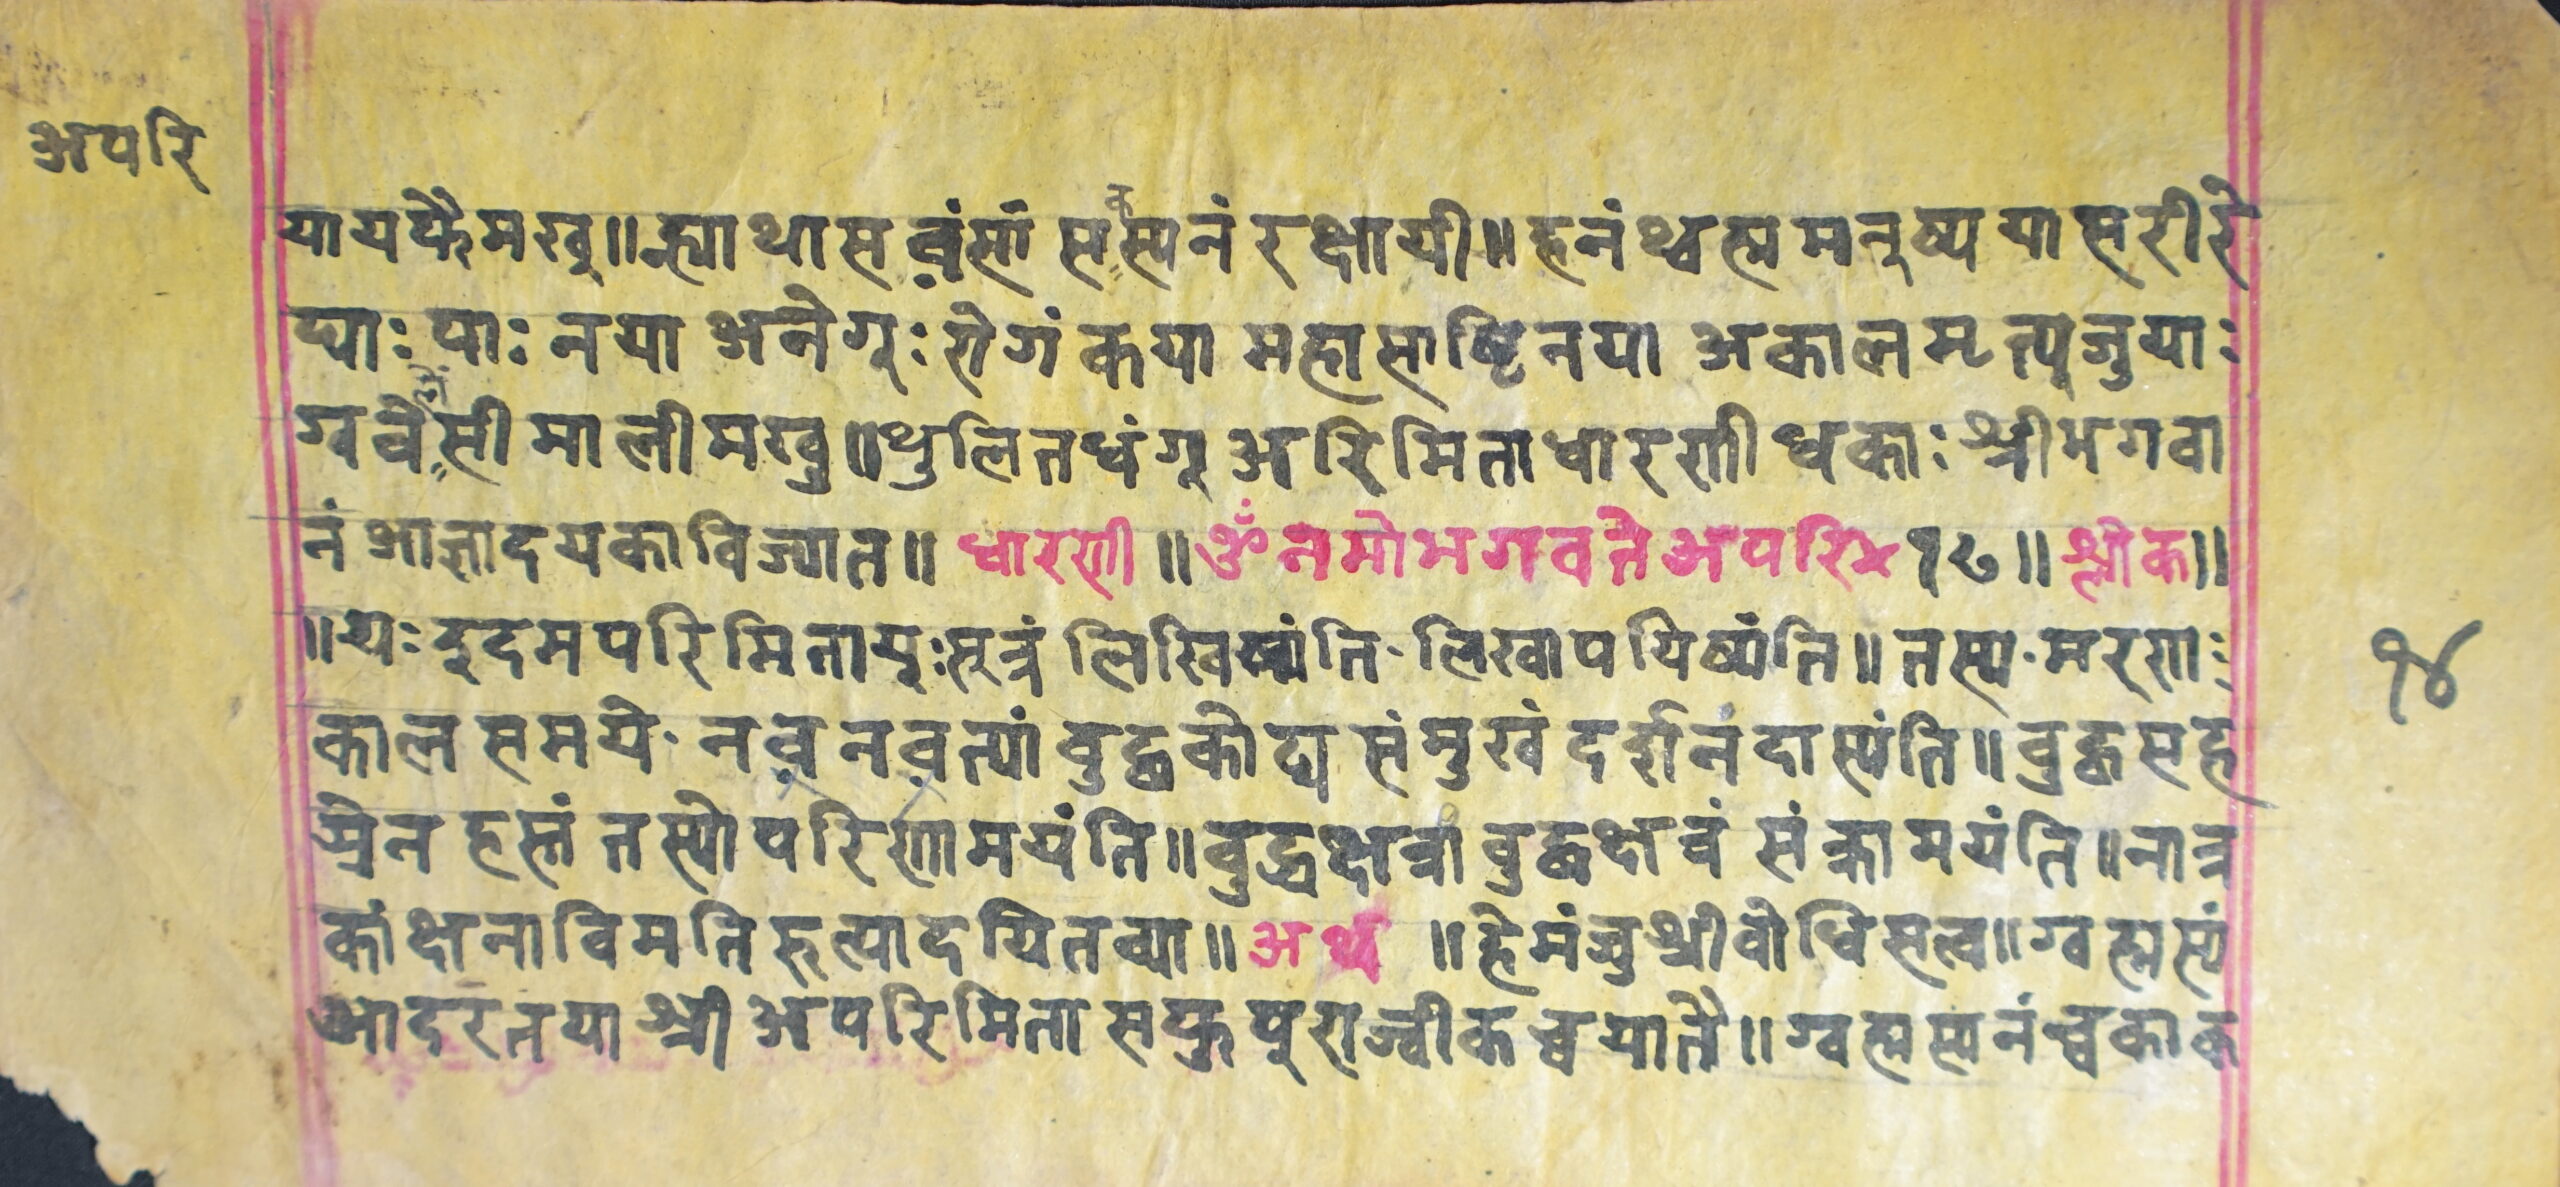 अपरि
यायफैमखु॥ह्याथासवंसां सकस्यनं रक्षायी॥हनंथ्वह्ममनुष्ययासरीरे
घाः पाः नया अनेगुः रोगं कया महासाष्टिनया अकालमृत्युजुयाः
ग्ववेलेंसी मालीमखु॥थुलितधंगु अरिमिताधारणीधकाः श्रीभगवा
नं आज्ञादयकाविज्यात॥ धारणी॥ॐनमोभगवतेअपरि× १८॥श्लोक॥
॥यः इदमपरिमितायुःसूत्रं लिखिष्यंति. लिखापयिष्यंति॥तस्य.मरणाः
कालसमये. नवनवत्यां बुद्धकोद्य संमुखं दर्शनंदास्यंति॥बुद्धसह
स्रेन हस्तं तस्योपरिणामयंति॥बुद्धक्षत्रां बुद्धक्षत्रं संक्रामयंति॥नात्र
कांक्षनाविमतिरुत्पादयितव्या॥अर्थ॥हेमंजुश्रीवोधिसत्व॥ग्वह्मस्यं
आदरतया श्री अपरिमिता सफुपुराज्वीकच्वयातै॥ग्वह्मस्यनंच्वकाक
१४